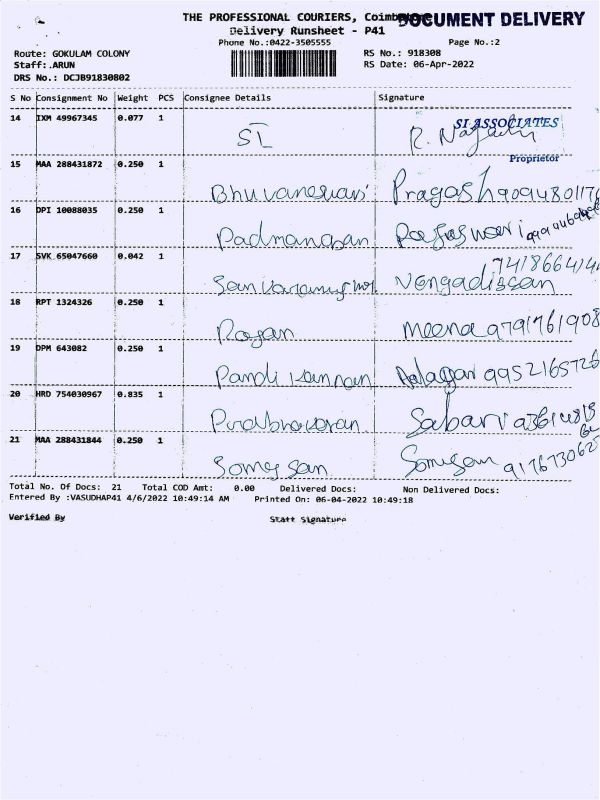 THE PROFESSIONAL COURIERS, Coimbatore
DOCUMENT DELIVERY
Delivery Runsheet - P41
Phone No.:0422-3505555
Page No.:2
Route: GOKULAM COLONY
RS No.: 918308
Staff:.ARUN
RS Date: 06-Apr-2022
DRS No.: DCJB91830802
S No Consignment No Weight PCS Consignee Details Signature
14 IXM 49967345 0.077 1
SI ASSOCIATES
SI
Proprietor
15 MAA 288431872 0.250 1
Bhuvaneswari Pragash
16 DPI 10088035 0.250 1
Padmanaban
17 SVK 65047660 0.042 1
Vengadissan
18 RPT 1324326 0.250 1
Rajan Meena 9791761908
19 DPM 643082 0.250 1
Pandi Kannan Aalagar 9952165726
20 HRD 754030967 0.835 1
Prabhakaran Sabari
21 MAA 288431844 0.250 1
Somesan Somesan
Total No. Of Docs: 21 Total COD Amt: 0.00 Delivered Docs: Non Delivered Docs:
Entered By :VASUDHAP41 4/6/2022 10:49:14 AM Printed On: 06-04-2022 10:49:18
Verified By Staff Signature